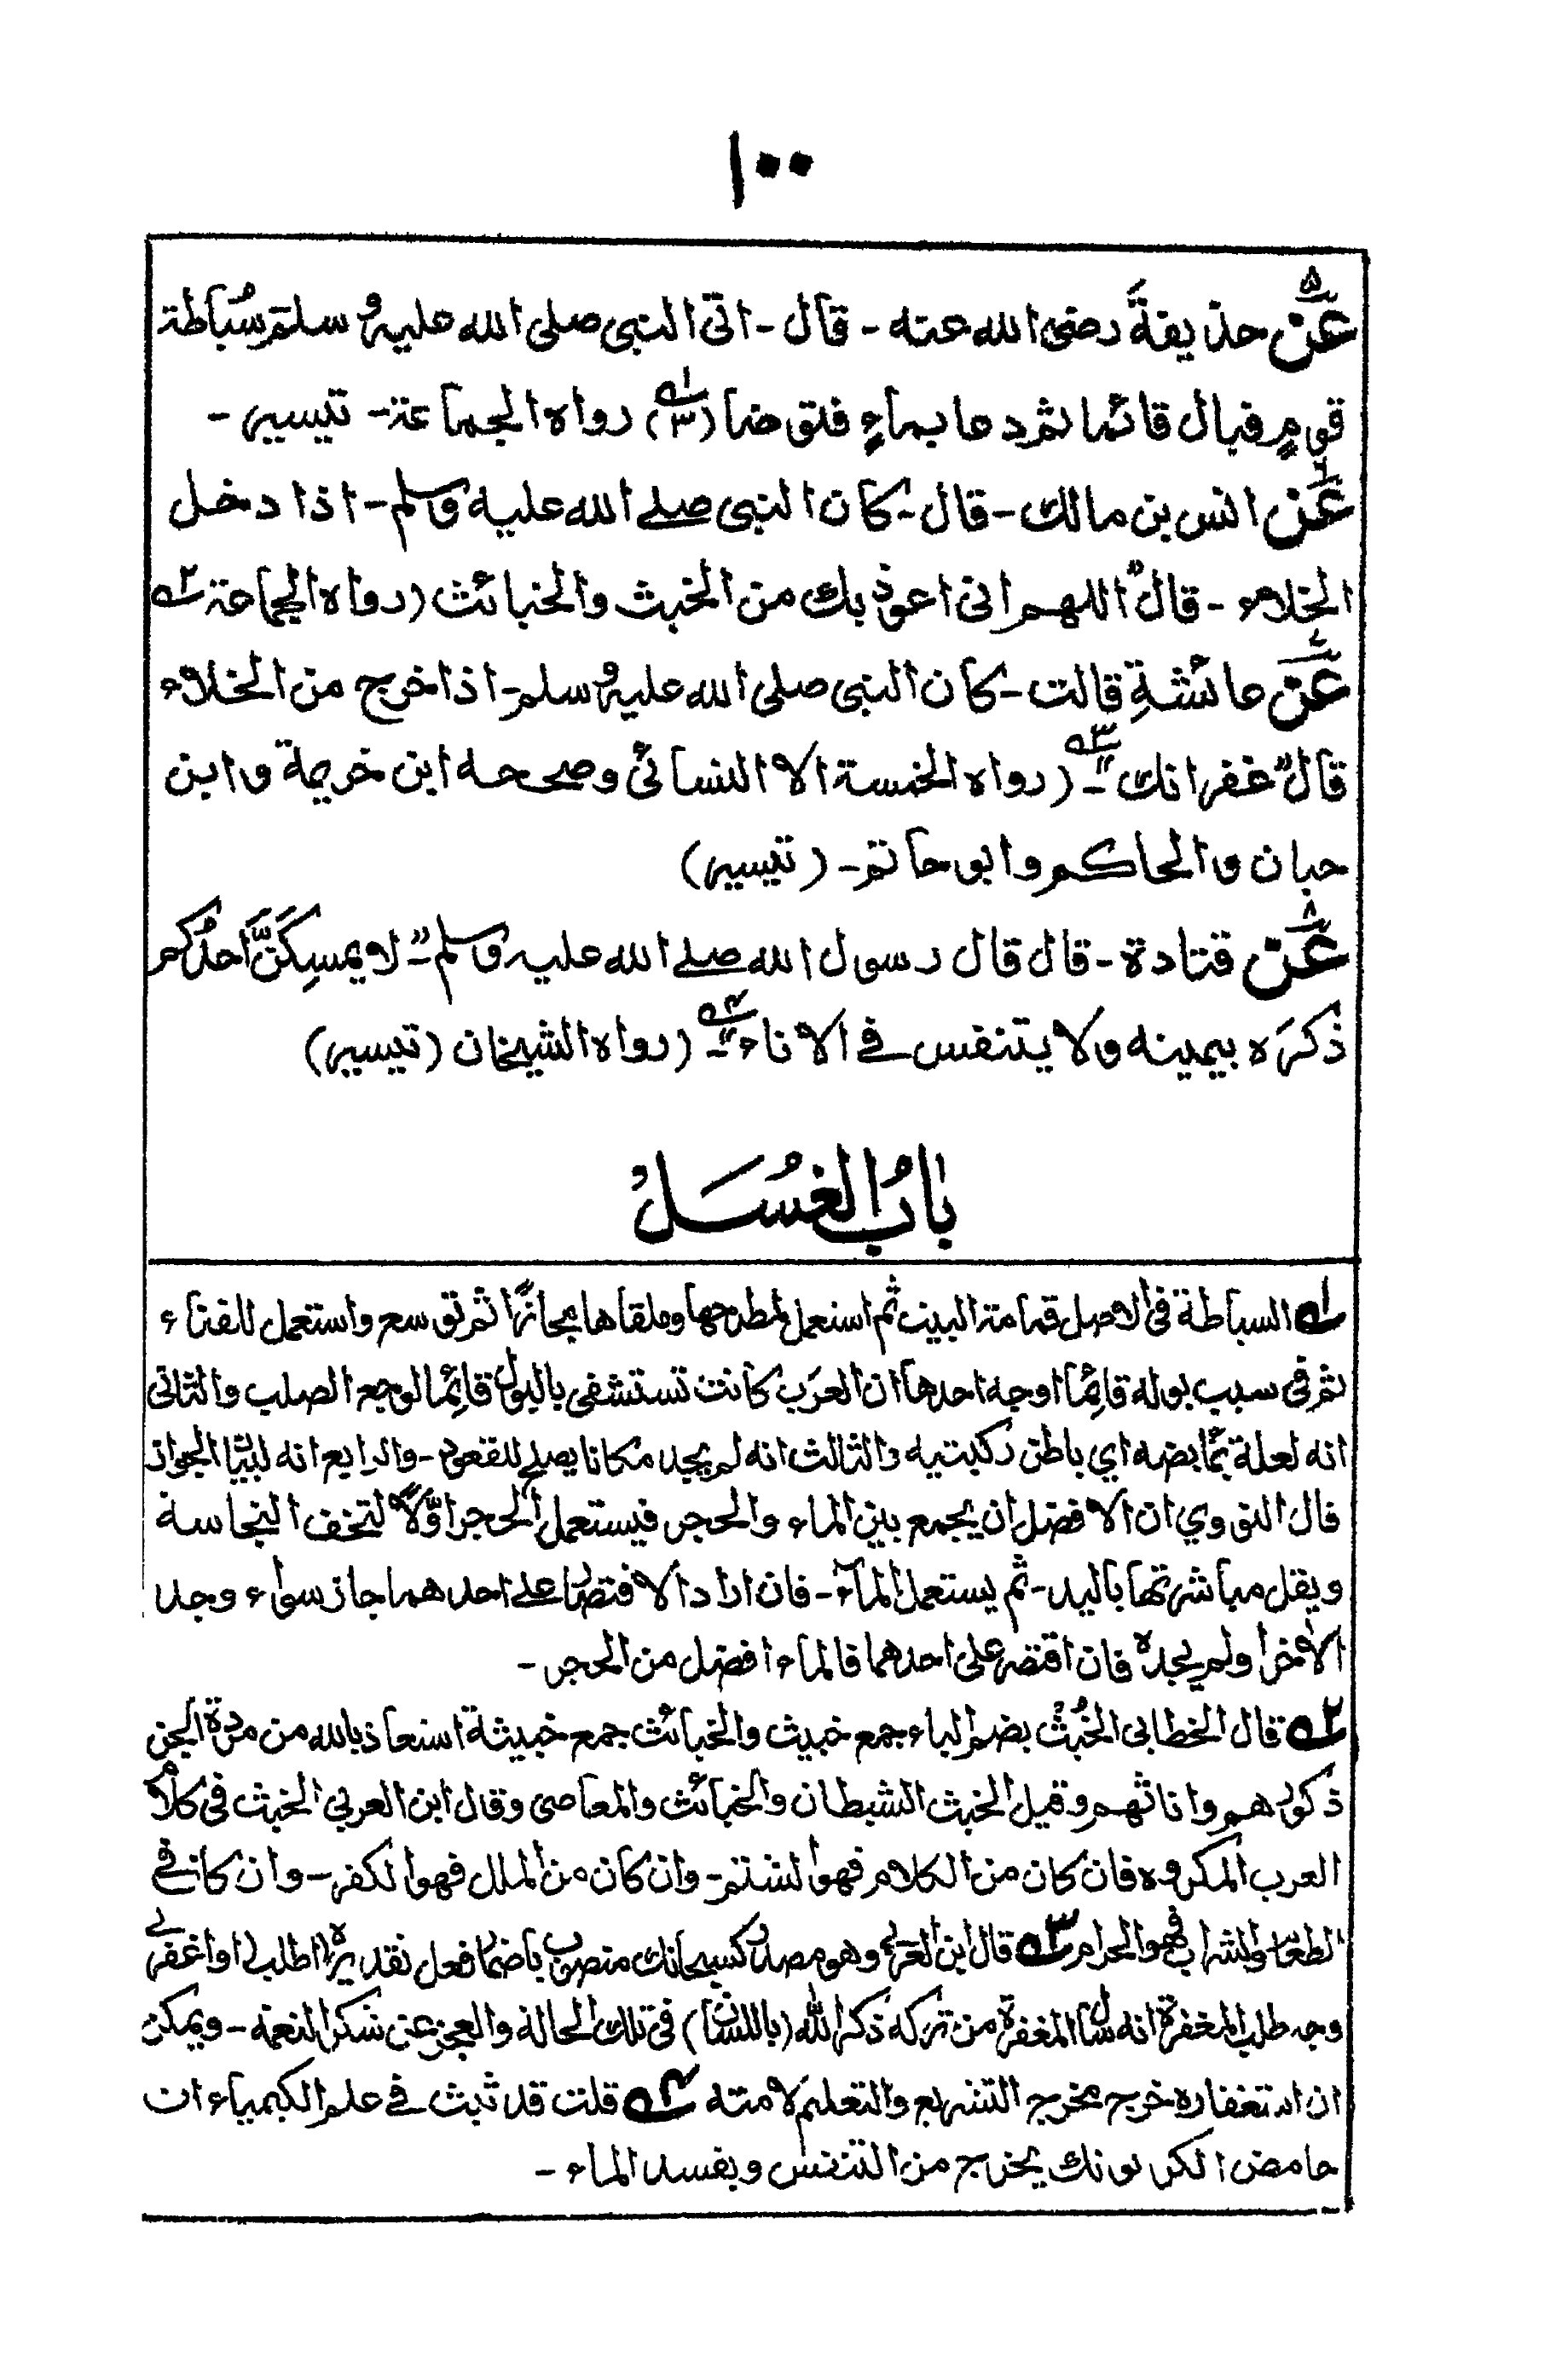 ١٠٠
٥ عن حذيفةَ رضى الله عنه - قال - اتى النبى صلى الله عليه وسلم سُباطة
قومٍ فبال قائما ثم دعا بماءٍ فتوضا (٣) ١؎ رواه الجماعة - تيسير -
٦ عن انس بن مالك - قال - كان النبى صلے الله عليه وسلم - اذا دخل
الخلاء - قال " اللهم انى اعوذ بك من الخبث والخبائث (رواه الجماعة ٢؎
٧ عن عائشةِ قالت - كان النبى صلى الله عليه وسلم - اذا خرج من الخلاء
قال " غفرانك " - ٣؎ (رواه الخمسة الا النسائى وصححه ابن خزيمة وابن
حبان والحاكم وابو حاتم - (تيسير)
٨ عن قتادة - قال قال رسول الله صلے الله عليه وسلم - " لا يمسِكَنَّ احدُكم
ذكرَه بيمينه ولا يتنفس فے الاناء " - ٤؎ (رواه الشيخان (تيسير)
بابُ الغُسَل
١؎ السباطة فى الاصل قمامة البيت ثم استعمل لمطرحها وملقاها مجازًا ثم توسعر واستعمل للفناء
ثم فى سبب بوله قائِما اوجه احدها ان العرَب كانت تستشفى بالبول قائِما لوجع الصلب والثانى
انه لعلة بمُابضه اي باطن ركبتيه والثالث انه لم يجد مكانا يصلح للقعود - والرابع انه لبيان الجواز
قال النووي ان الافضل ان يجمع بين الماء والحجر فيستعمل الحجر اوّلاً لتخف النجاسة
ويقل مباشرتها باليد - ثم يستعمل المآء - فان اراد الاقتصار علے احدهما جاز سواء وجد
الاٰخر او لم يجده فان اقتصر على احدهما فالماء افضل من الحجر -
٢؎ قال الخطابى الخُبُثُ بضم الباء جمع خبيث والخبائث جمع خبيثة استعاذ بالله من مردة الجن
ذكورهم واناثهم وقيل الخبث الشيطان والخبائث والمعاصى وقال ابن العربي الخبث فى كلام
العرب المكروه فان كان من الكلام فهو الشتم - وان كان من الملل فهو الكفر - وان كان فے
الطعام والشراب فهو الحرام ٣؎ قال ابن العربے وهو مصدر كسبحانك منصوب باضمار فعل تقديره اطلب او اغفرلے
وجه طلب المغفرة انه سال المغفرة من تركه ذكر الله (باللسان) فى تلك الحالة والعجز عن شكر النعمة - ويمكن
ان استغفاره خرج مخرج التشريع والتعليم لامته ٤؎ قلت قد ثبث فے علم الكيمياء ان
حامض الكربونك يخرج من التنفس ويفسد الماء -